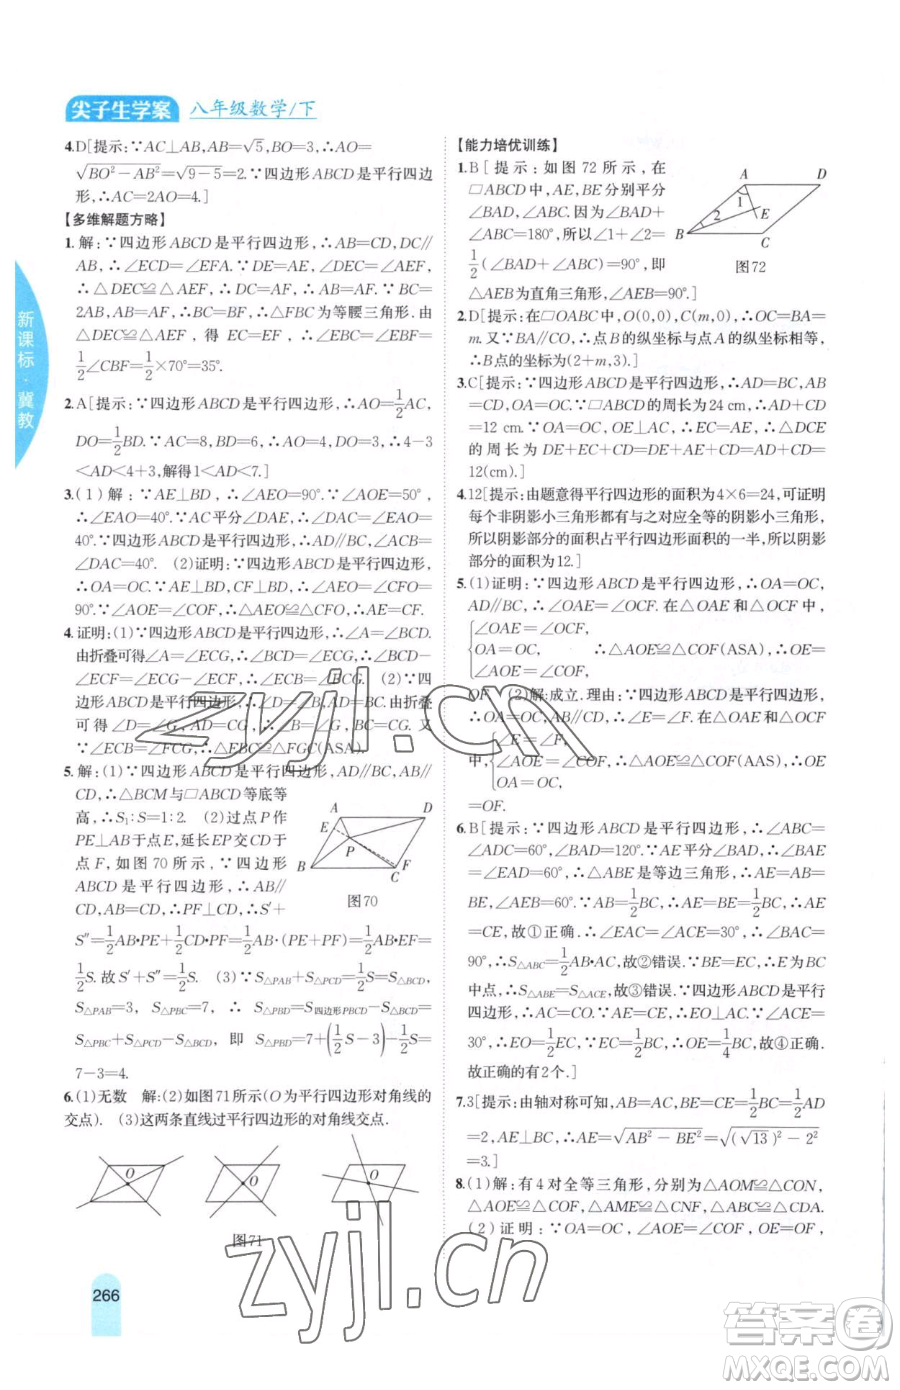 尖子生学案 八年级数学/下
4.D[提示:∵AC⊥AB,AB=√5,BO=3,∴AO=
√(BO²-AB²)=√(9-5)=2.∵四边形ABCD是平行四边
形,∴AC=2AO=4.]
【多维解题方略】
1.解:∵四边形ABCD是平行四边形,∴AB=CD,DC∥
AB,∴∠ECD=∠EFA.∵DE=AE,∠DEC=∠AEF,
∴△DEC≌△AEF,∴DC=AF,∴AB=AF.∵BC=
2AB,AB=AF,∴BC=BF,∴△FBC为等腰三角形.由
△DEC≌△AEF,得EC=EF,∴∠EBC=∠EBF=
1/2∠CBF=1/2×70°=35°.
2.A[提示:∵四边形ABCD是平行四边形,∴AO=1/2AC,
DO=1/2BD.∵AC=8,BD=6,∴AO=4,DO=3,∴4-3
<AD<4+3,解得1<AD<7.]
3.(1)解:∵AE⊥BD,∴∠AEO=90°.∵∠AOE=50°,
∴∠EAO=40°.∵AC平分∠DAE,∴∠DAC=∠EAO=
40°.∵四边形ABCD是平行四边形,∴AD∥BC,∴∠ACB=
∠DAC=40°. (2)证明:∵四边形ABCD是平行四边形,
∴OA=OC.∵AE⊥BD,CF⊥BD,∴∠AEO=∠CFO=
90°.∵∠AOE=∠COF,∴△AEO≌△CFO,∴AE=CF.
4.证明:(1)∵四边形ABCD是平行四边形,∴∠A=∠BCD.
由折叠可得∠A=∠ECG,∴∠BCD=∠ECG,∴∠BCD-
∠ECF=∠ECG-∠ECF,∴∠ECB=∠FCG. (2)∵四
边形ABCD是平行四边形,∴∠D=∠B,AD=BC.由折叠
可得∠D=∠G,AD=CG,∴∠B=∠G,BC=CG.又
∵∠ECB=∠FCG,∴△EBC≌△FGC(ASA).
5.解:(1)∵四边形ABCD是平行四边形,AD∥BC,AD=
BC,∴△BCM与□ABCD等底等
高,∴S₁:S=1:2. (2)过点P作
PE⊥AB于点E,延长EP交CD于
点F,如图70所示,∵四边形
ABCD是平行四边形,∴AB∥
CD,AB=CD,∴PF⊥CD,∴S′+
S″=1/2AB·PE+1/2CD·PF=1/2AB·(PE+PF)=1/2AB·EF=
1/2S.故S′+S″=1/2S. (3)∵S△PAB+S△PCD=1/2S=S△BCD,
S△PAB=3,S△PBC=7,∴S△PBD=S四边形PBCD-S△BCD=
S△PBC+S△PCD-S△BCD,即S△PBD=7+(1/2S-3)-1/2S=
7-3=4.
A D E P B C F
图70
6.(1)无数 解:(2)如图71所示(O为平行四边形对角线的
交点). (3)这两条直线过平行四边形的对角线交点.
O O O
图71
【能力培优训练】
1.B[提示:如图72所示,在
□ABCD中,AE,BE分别平分
∠BAD,∠ABC.因为∠BAD+
∠ABC=180°,所以∠1+∠2=
1/2(∠BAD+∠ABC)=90°,即
△AEB为直角三角形,∠AEB=90°.]
A D 1 2 E B C
图72
2.D[提示:在□OABC中,O(0,0),C(m,0),∴OC=BA=
m.又∵BA∥CO,∴点B的纵坐标与点A的纵坐标相等,
∴B点的坐标为(2+m,3).]
3.C[提示:∵四边形ABCD是平行四边形,∴AD=BC,AB
=CD,OA=OC.∵□ABCD的周长为24 cm,∴AD+CD
=12 cm.∵OA=OC,OE⊥AC,∴AE=CE,∴△DCE
的周长为DE+EC+CD=DE+AE+CD=AD+CD=
12(cm).]
4.12[提示:由题意得平行四边形的面积为4×6=24,可证明
每个非阴影小三角形都有与之对应全等的阴影小三角形,
所以阴影部分的面积占平行四边形面积的一半,所以阴影
部分的面积为12.]
5.(1)证明:∵四边形ABCD是平行四边形,∴OA=OC,
AD∥BC,∴∠OAE=∠OCF.在△OAE和△OCF中,
∠OAE=∠OCF,
OA=OC, ∴△AOE≌△COF(ASA),∴OE=
∠AOE=∠COF,
OF. (2)解:成立.理由:∵四边形ABCD是平行四边形,
∴OA=OC,AB∥CD,∴∠E=∠F.在△AOE和△COF
∠E=∠F,
中, ∠AOE=∠COF, ∴△AOE≌△COF(AAS),∴OE
OA=OC,
=OF.
6.B[提示:∵四边形ABCD是平行四边形,∴∠ABC=
∠ADC=60°,∠BAD=120°.∵AE平分∠BAD,∴∠BAE
=∠EAD=60°,∴△ABE是等边三角形,∴AE=AB=BE,
∠AEB=60°.∵AB=1/2BC,∴AE=BE=1/2BC,∴AE
=CE,故①正确.∴∠EAC=∠ACE=30°,∴∠BAC=
90°,∴S△ABC=1/2AB·AC,故②错误.∵BE=EC,∴E为BC
中点,∴S△ABE=S△ACE,故③错误.∵四边形ABCD是平行
四边形,∴AC=CO.∵AE=CE,∴EO⊥AC.∵∠ACE=
30°,∴OE=1/2EC,∵EC=1/2BC,∴OE=1/4BC,故④正确.
故正确的有2个.]
7.3[提示:由轴对称可知,AB=AC=√13,BE=1/2BC=1/2AD
=2,BE⊥AE,∴AE=√(AB²-BE²)=√((√13)²-2²)
=3.]
8.(1)解:有4对全等三角形,分别为△AOM≌△CON,
△AOE≌△COF,△AME≌△CNF,△ABC≌△CDA.
(2)证明:∵OA=OC,∠AOE=∠COF,OE=OF,
新课标·冀教
266
zyjl.cn
zyjl.cn
答案圈
MXQE.COM